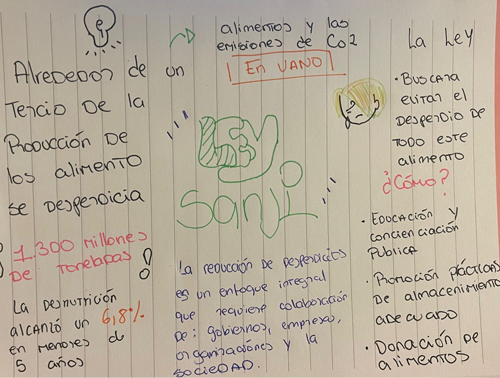 Alrededor de un
Tercio De la
Producción De
los alimento
se desperdicia
1.300 millones
De Toneladas !
La Desnutrición
alcanzó un 6,8%
en menores de
5 años
alimentos y las
emisiones de Co2
En vano
Ley
Sanji
La reducción de desperdicios
es un enfoque integral
que requiere colaboración
de: gobiernos, empresas,
organizaciones y la
sociedad.
La Ley
• Buscara
evitar el
Desperdio de
Todo este
alimento
¿Cómo?
• Educación y
concienciación
Pública
• Promoción prácticas
De almacenimiento
adecuado
• Donación de
alimentos